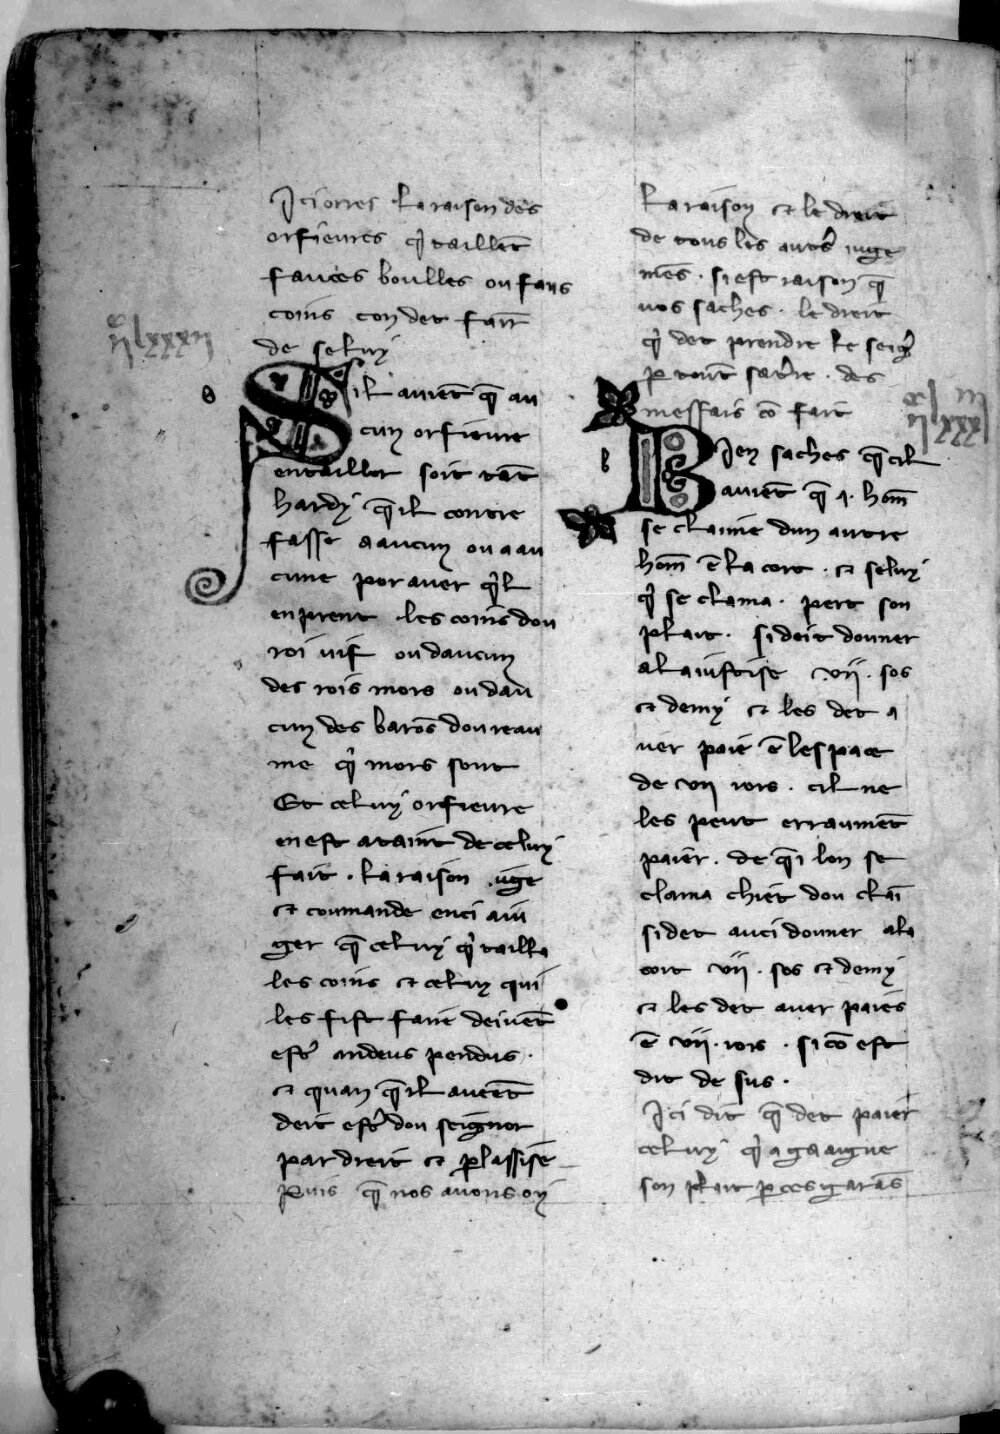 Ici orres la raison des
orfieures q̇ taillēt
fauces boulles ou faus
coins con det faire
de seluy
Sil auiēt q̄ au
cun orfieure
entailleor soit tāt
hardy q̄ il contre
fasse a aucun ou a au
cune por auer q̇l
en prent les coins dou
roi uif ou daucun
des rois mors ou dau
cun des barōs dou reau
me q̇ mors sont
Et celuy orfieure
en est ataint de celuy
fait . la raison iuge
⁊ coumande enci aiu
ger q̄ celuy q̇ tailla
les coins ⁊ celuy qui
les fist faire deiuēt
estr̄ andeus pendus .
⁊ quan q̄ il auoiēt
deit estr̄ dou seignor
par dreit ⁊ ꝑ lassise
Puis q̄ nos auons oy
la raison ⁊ le dreit
de tous les autr̄s iuge
mēs . si est raison q̄
uos saches . le dreit
q̇ det prendre le seigr̄
ꝑ tout sa tr̄re . des
mesfais cō fait
Bien saches q̄ cil
auiēt q̄ .i. hom̄
se claime dun autre
hom̄ ē la cort . ⁊ seluy
q̇ se clama . pert son
plait . si deit donner
a la iustise .vii. sos
⁊ demy ⁊ les det a
uer paié ē lespace
de vii iors . cil ne
les peut erraumēt
paier . de q̄i lon se
clama chiet dou claī
si det auci donner a la
cort vii . sos ⁊ demy
⁊ les det auer paiés
ē vii . iors . si cō est
dit de sus .
Ici dit q̄ det paier
celuy q̇ a gaaigne
son plait ꝑ ces garās